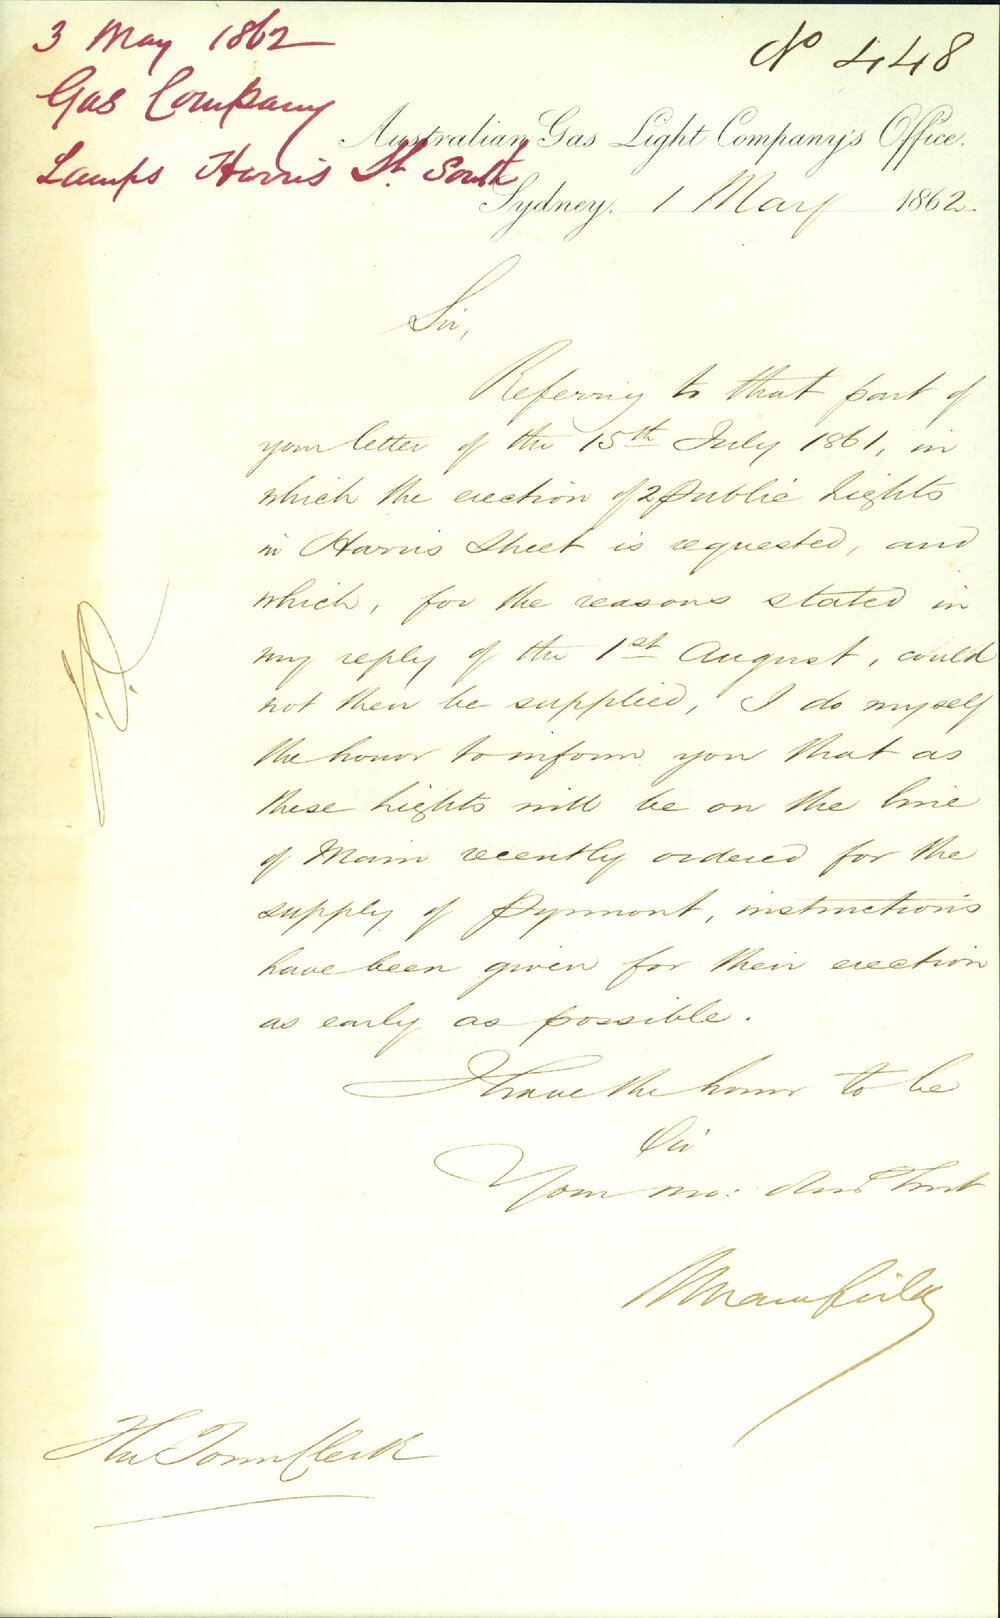 3 May 1862
Gas Company
Lamps Harris St. South
No 448
Australian Gas Light Company's Office.
Sydney, 1 May 1862.
Sir,
Referring to that part of
your letter of the 15th July 1861, in
which the erection of 2 Public Lights
in Harris Street is requested, and
which, for the reasons stated in
my reply of the 1st August, could
not then be supplied, I do myself
the honor to inform you that as
these Lights will be on the line
of Main recently ordered for the
supply of Pyrmont, instructions
have been given for their erection
as early as possible.
I have the honor to be
Sir
Your mo: Obed Servt
Mansfield
The Town Clerk